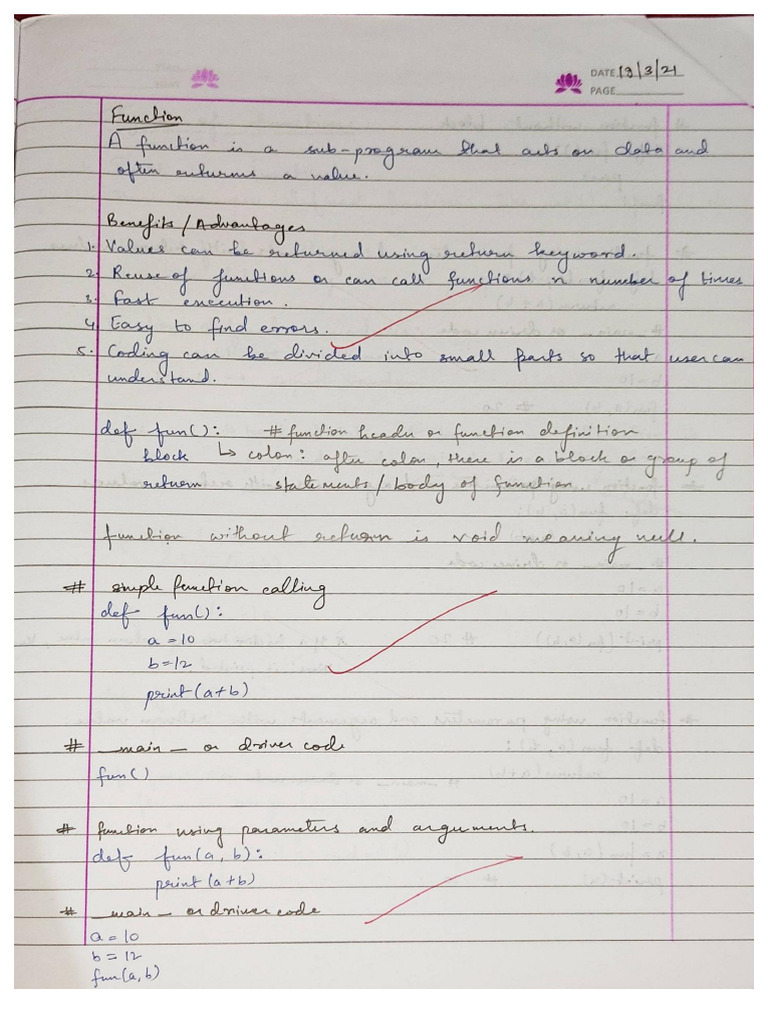 DATE 19/3/21
PAGE
Function
A function is a sub-program that acts on data and
often returns a value.
Benefits / Advantages
1. Values can be returned using return keyword.
2. Reuse of functions or can call functions n number of times
3. Fast execution.
4. Easy to find errors.
5. Coding can be divided into small parts so that user can
understand.
def fun(): # function header or function definition
block ↳ colon: after colon, there is a block or group of
return statements / body of function
function without return is void meaning null.
# simple function calling
def fun():
a = 10
b = 12
print(a+b)
# __main_ or driver code
fun()
# function using parameters and arguments.
def fun(a, b):
print (a+b)
# __main_ or driver code
a = 10
b = 12
fun(a,b)